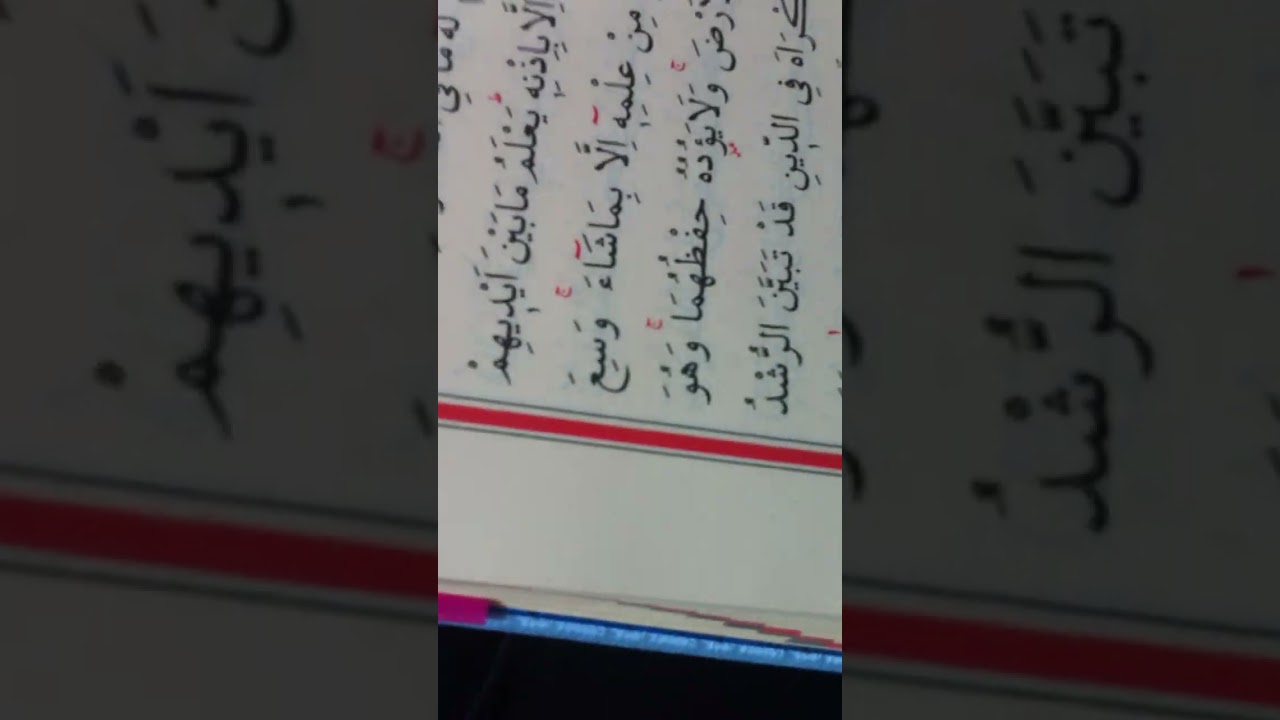 لَهُ مَا فِي
اِلَّا بِاِذْنِهٖ يَعْلَمُ مَا بَيْنَ اَيْدٖيهِمْ
مِنْ عِلْمِهٖٓ اِلَّا بِمَا شَٓاءَ وَسِعَ
وَلَا يَؤُ۫دُهُ حِفْظُهُمَا وَهُوَ
فِي الدّٖينِ قَدْ تَبَيَّنَ الرُّشْدُ